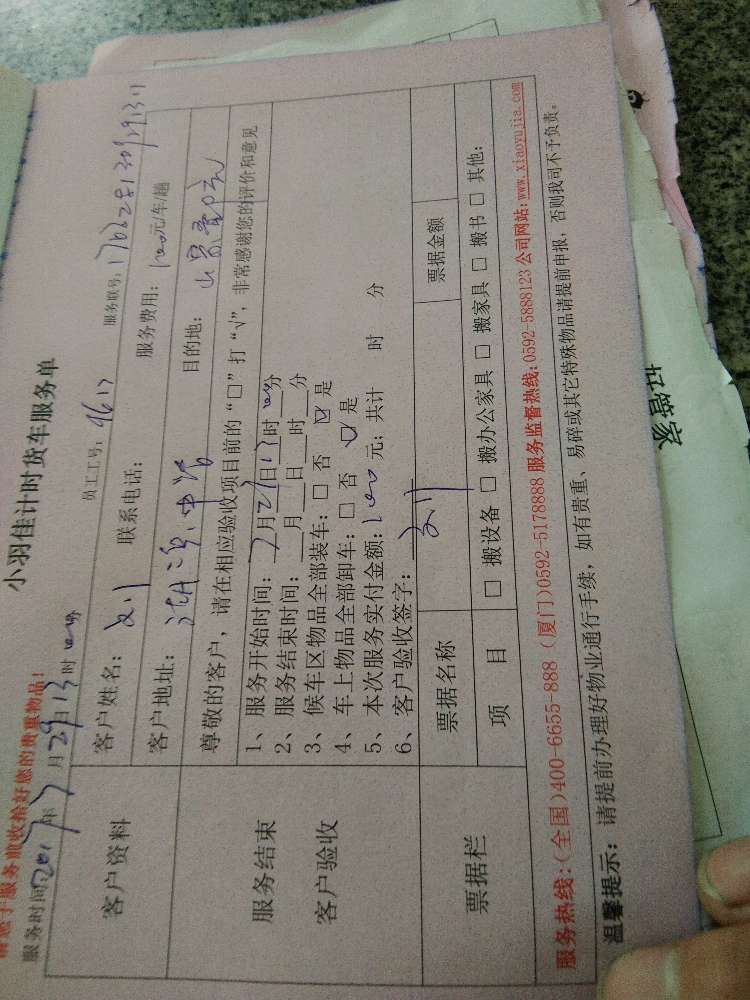 小羽佳计时货车服务单
前收拾好您的贵重物品!
服务时间:2017年7月29日13时
员工工号: 4617 服务联号:
客户资料
客户姓名: 联系电话: 服务费用: 100元/车/趟
客户地址: 目的地:
服务结束
客户验收
尊敬的客户,请在相应验收项目前的“□”打“√”,非常感谢您的评价和意见
1、服务开始时间:7月29日13时 分
2、服务结束时间:___月___日___时___分
3、候车区物品全部装车:□ 否 ☑ 是
4、车上物品全部卸车:□ 否 ☑ 是
5、本次服务实付金额:100元;共计 时 分
6、客户验收签字:
票据栏
票据名称 票据金额
项 目 □ 搬设备 □ 搬办公家具 □ 搬家具 □ 搬书 □ 其他:
服务热线:(全国)400-6655-888 (厦门)0592-5178888 服务监督热线:0592-5888123 公司网站:www.xiaoyujia.com
温馨提示: 请提前办理好物业通行手续,如有贵重、易碎或其它特殊物品请提前申报,否则我司不予负责。
好管家